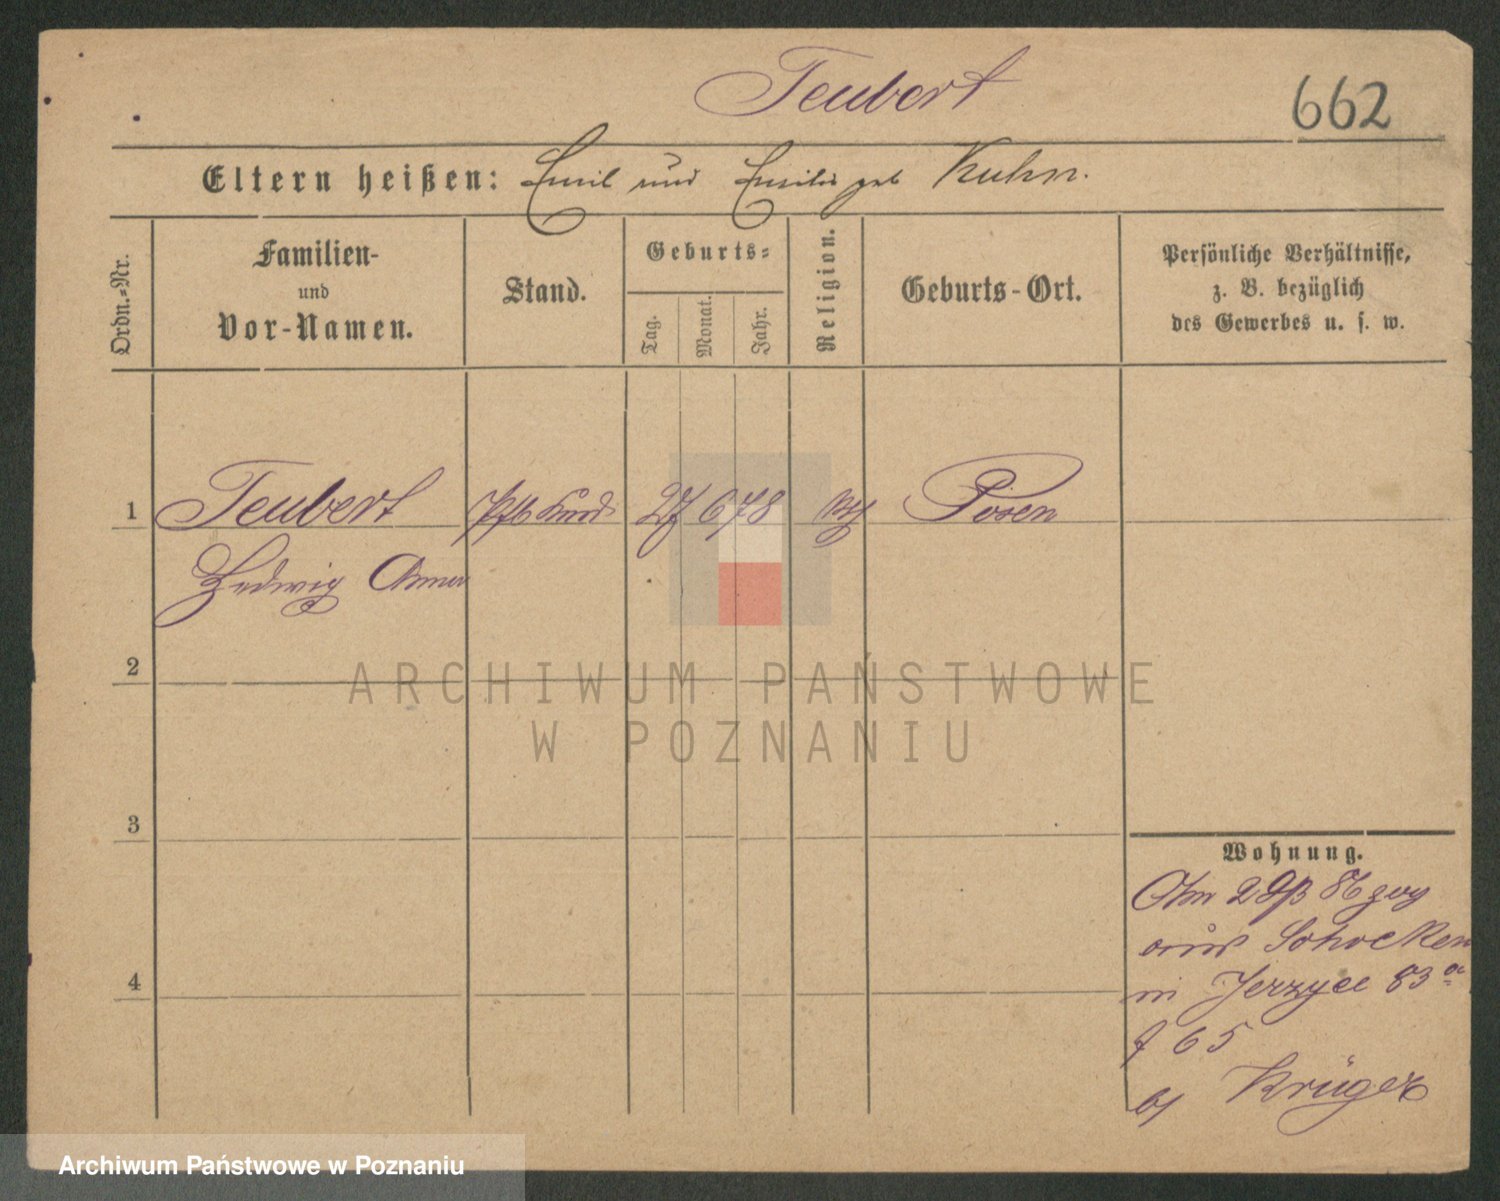 Teubert
662
Eltern heißen: Emil und Emilie geb Kuhn.
Ordn.-Nr.
Familien-
und
Vor-Namen.
Stand.
Geburts-
Tag.
Monat.
Jahr.
Religion.
Geburts-Ort.
Persönliche Verhältnisse,
z. B. bezüglich
des Gewerbes u. s. w.
1 Teubert 27 6 78 Posen
Hedwig Anna
2
3
4
Wohnung.
86
aus Schocken
in Jerzyce 83a
f 65
Krüger
ARCHIWUM PAŃSTWOWE
W POZNANIU
Archiwum Państwowe w Poznaniu